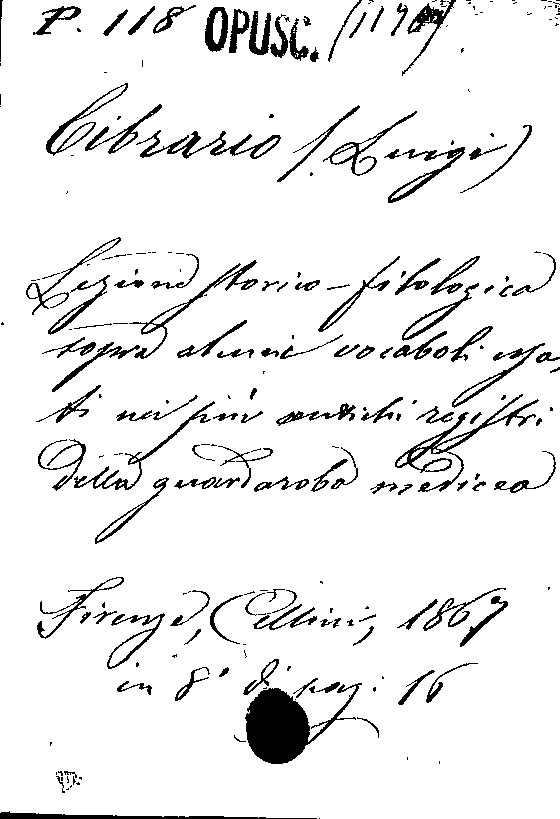 P. 118 OPUSC.
Cibrario (Luigi)
Lezione storico-filologica
sopra alcuni vocaboli usa-
ti nei più antichi registri
della guardaroba medicea
Firenze, Cellini, 1867
in 8° di pag: 16